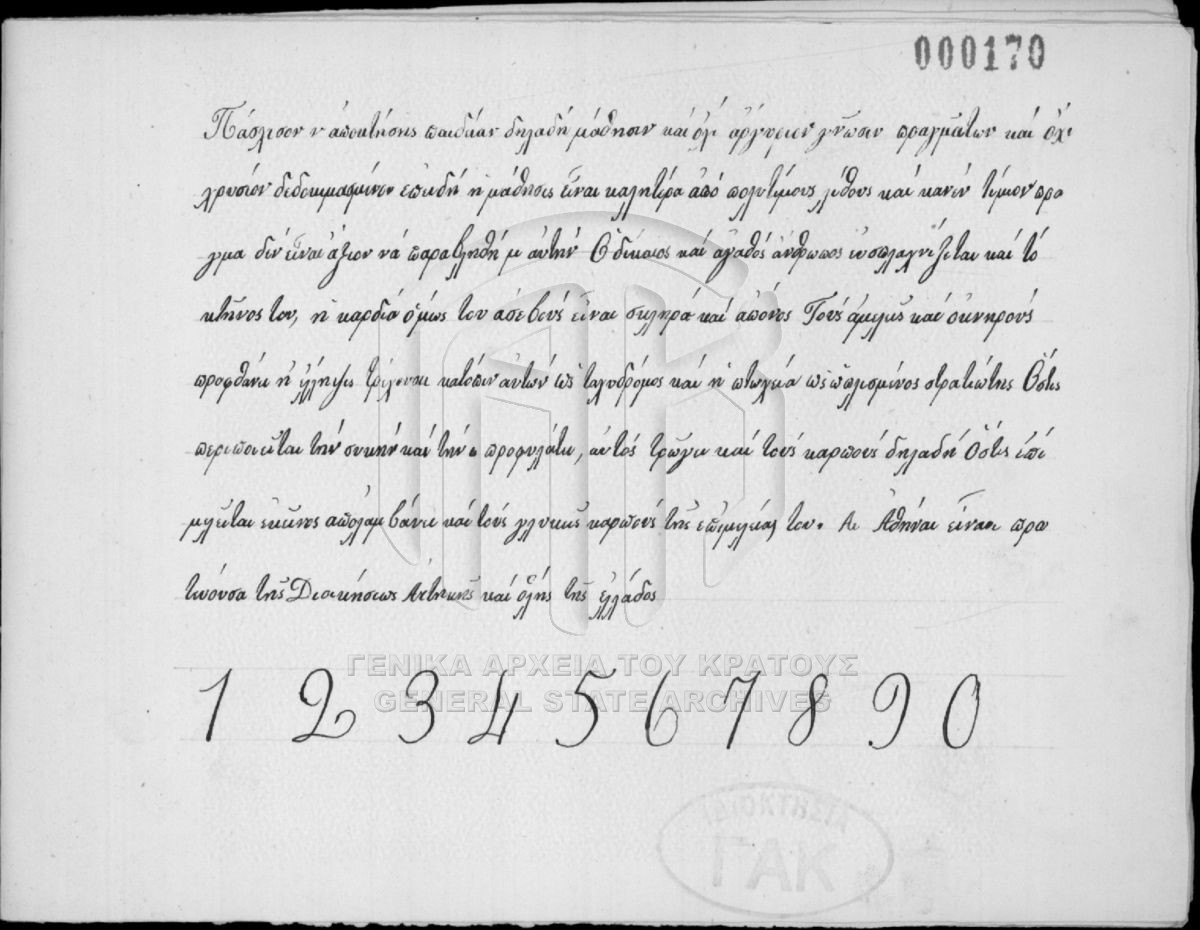 000170
Πάσχισον ν αποκτήσης παιδείαν δηλαδή μάθησιν και όχι αργύριον γνῶσιν πραγμάτων και όχι
χρυσίον δεδοκιμασμένον επειδή η μάθησις εἶναι καλητέρα από πολυτίμους λίθους και κανέν τίμιον πρα
γμα δέν εἶναι άξιον νά παραβληθῇ μ αυτήν Ο δίκαιος και αγαθός άνθρωπος ευσπλαγχνίζεται και τό
κτῆνος του, η καρδιά όμως του ασεβούς εἶναι σκληρά και απόνος Τούς αμελεῖς και οκνηρούς
προφθάνει η έλλειψις τρέχουσα κατόπιν αυτών ως ταχυδρόμος και η πτωχεία ως οπλισμένος στρατιώτης Όστις
περιποιεῖται τήν συκήν και τήν προφυλάτει, αυτός τρῶγει και τούς καρπούς δηλαδή Όστις επι
μελεῖται εκεῖνος απολαμβάνει και τούς γλυκεῖς καρπούς τῆς επιμελείας του. Αι Αθήναι είναι πρω
τεύουσα τῆς Διοικήσεως Αττικῆς και όλης τῆς Ελλάδος
1 2 3 4 5 6 7 8 9 0
ΓΕΝΙΚΑ ΑΡΧΕΙΑ ΤΟΥ ΚΡΑΤΟΥΣ
GENERAL STATE ARCHIVES
ΙΔΙΟΚΤΗΣΙΑ
ΓΑΚ